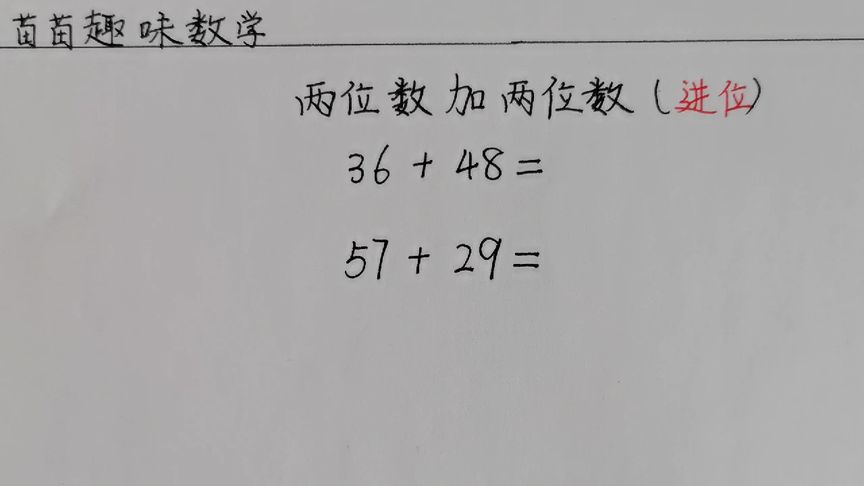 苗苗趣味数学
两位数加两位数（进位）
36 + 48 =
57 + 29 =